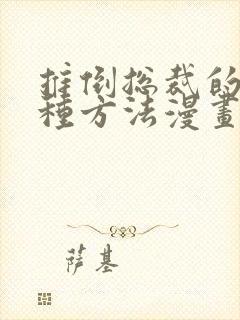 推倒总裁的
種方法漫畫
萨基